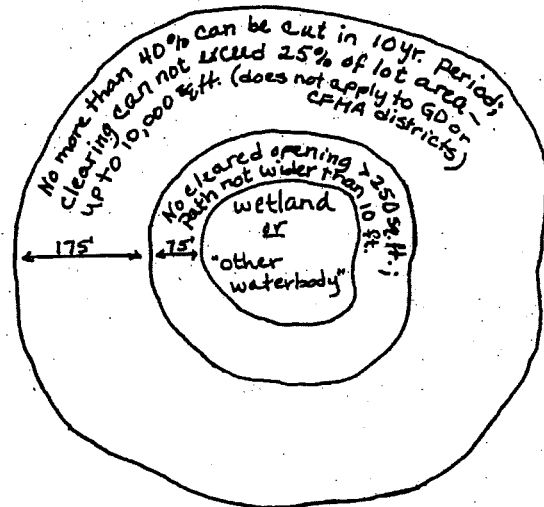 No more than 40% can be cut in 10 yr. period;
clearing can not exceed 25% of lot area –
up to 10,000 sq. ft. (does not apply to GD or
CFMA districts)
No cleared opening > 250 sq. ft. ;
Path not wider than 10 ft.
wetland
or
"other
waterbody"
175'
75'